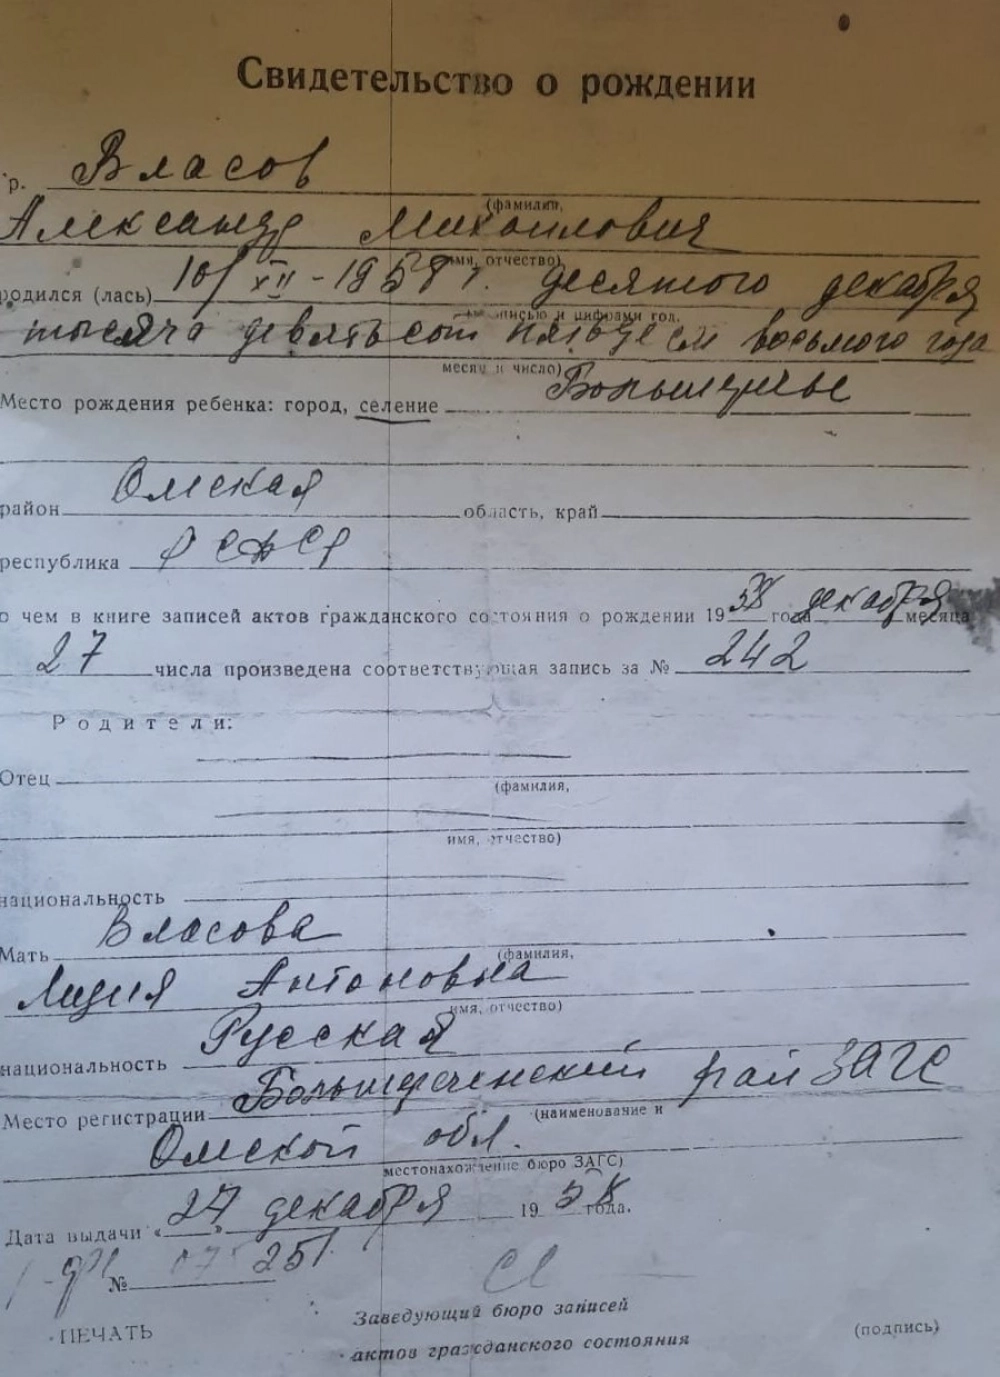 Свидетельство о рождении
гр. Власов
(фамилия,
Александр Михайлович
имя, отчество)
родился (лась) 10/XII-1958 г. десятого декабря
прописью и цифрами год.
тысяча девятьсот пятьдесят восьмого года
месяц и число)
Место рождения ребенка: город, селение
район Омская область, край
республика РСФСР
о чем в книге записей актов гражданского состояния о рождении 1958 года декабря месяца
27 числа произведена соответствующая запись за № 242
Родители:
Отец
(фамилия,
имя, отчество)
национальность
Мать Власова
(фамилия,
Лидия Антоновна
имя, отчество)
национальность Русская
Место регистрации Большереченский рай ЗАГС
(наименование и
Омской обл.
местонахождение бюро ЗАГС)
Дата выдачи «27» декабря 1958 года.
№ 251
Заведующий бюро записей
ПЕЧАТЬ
(подпись)
актов гражданского состояния